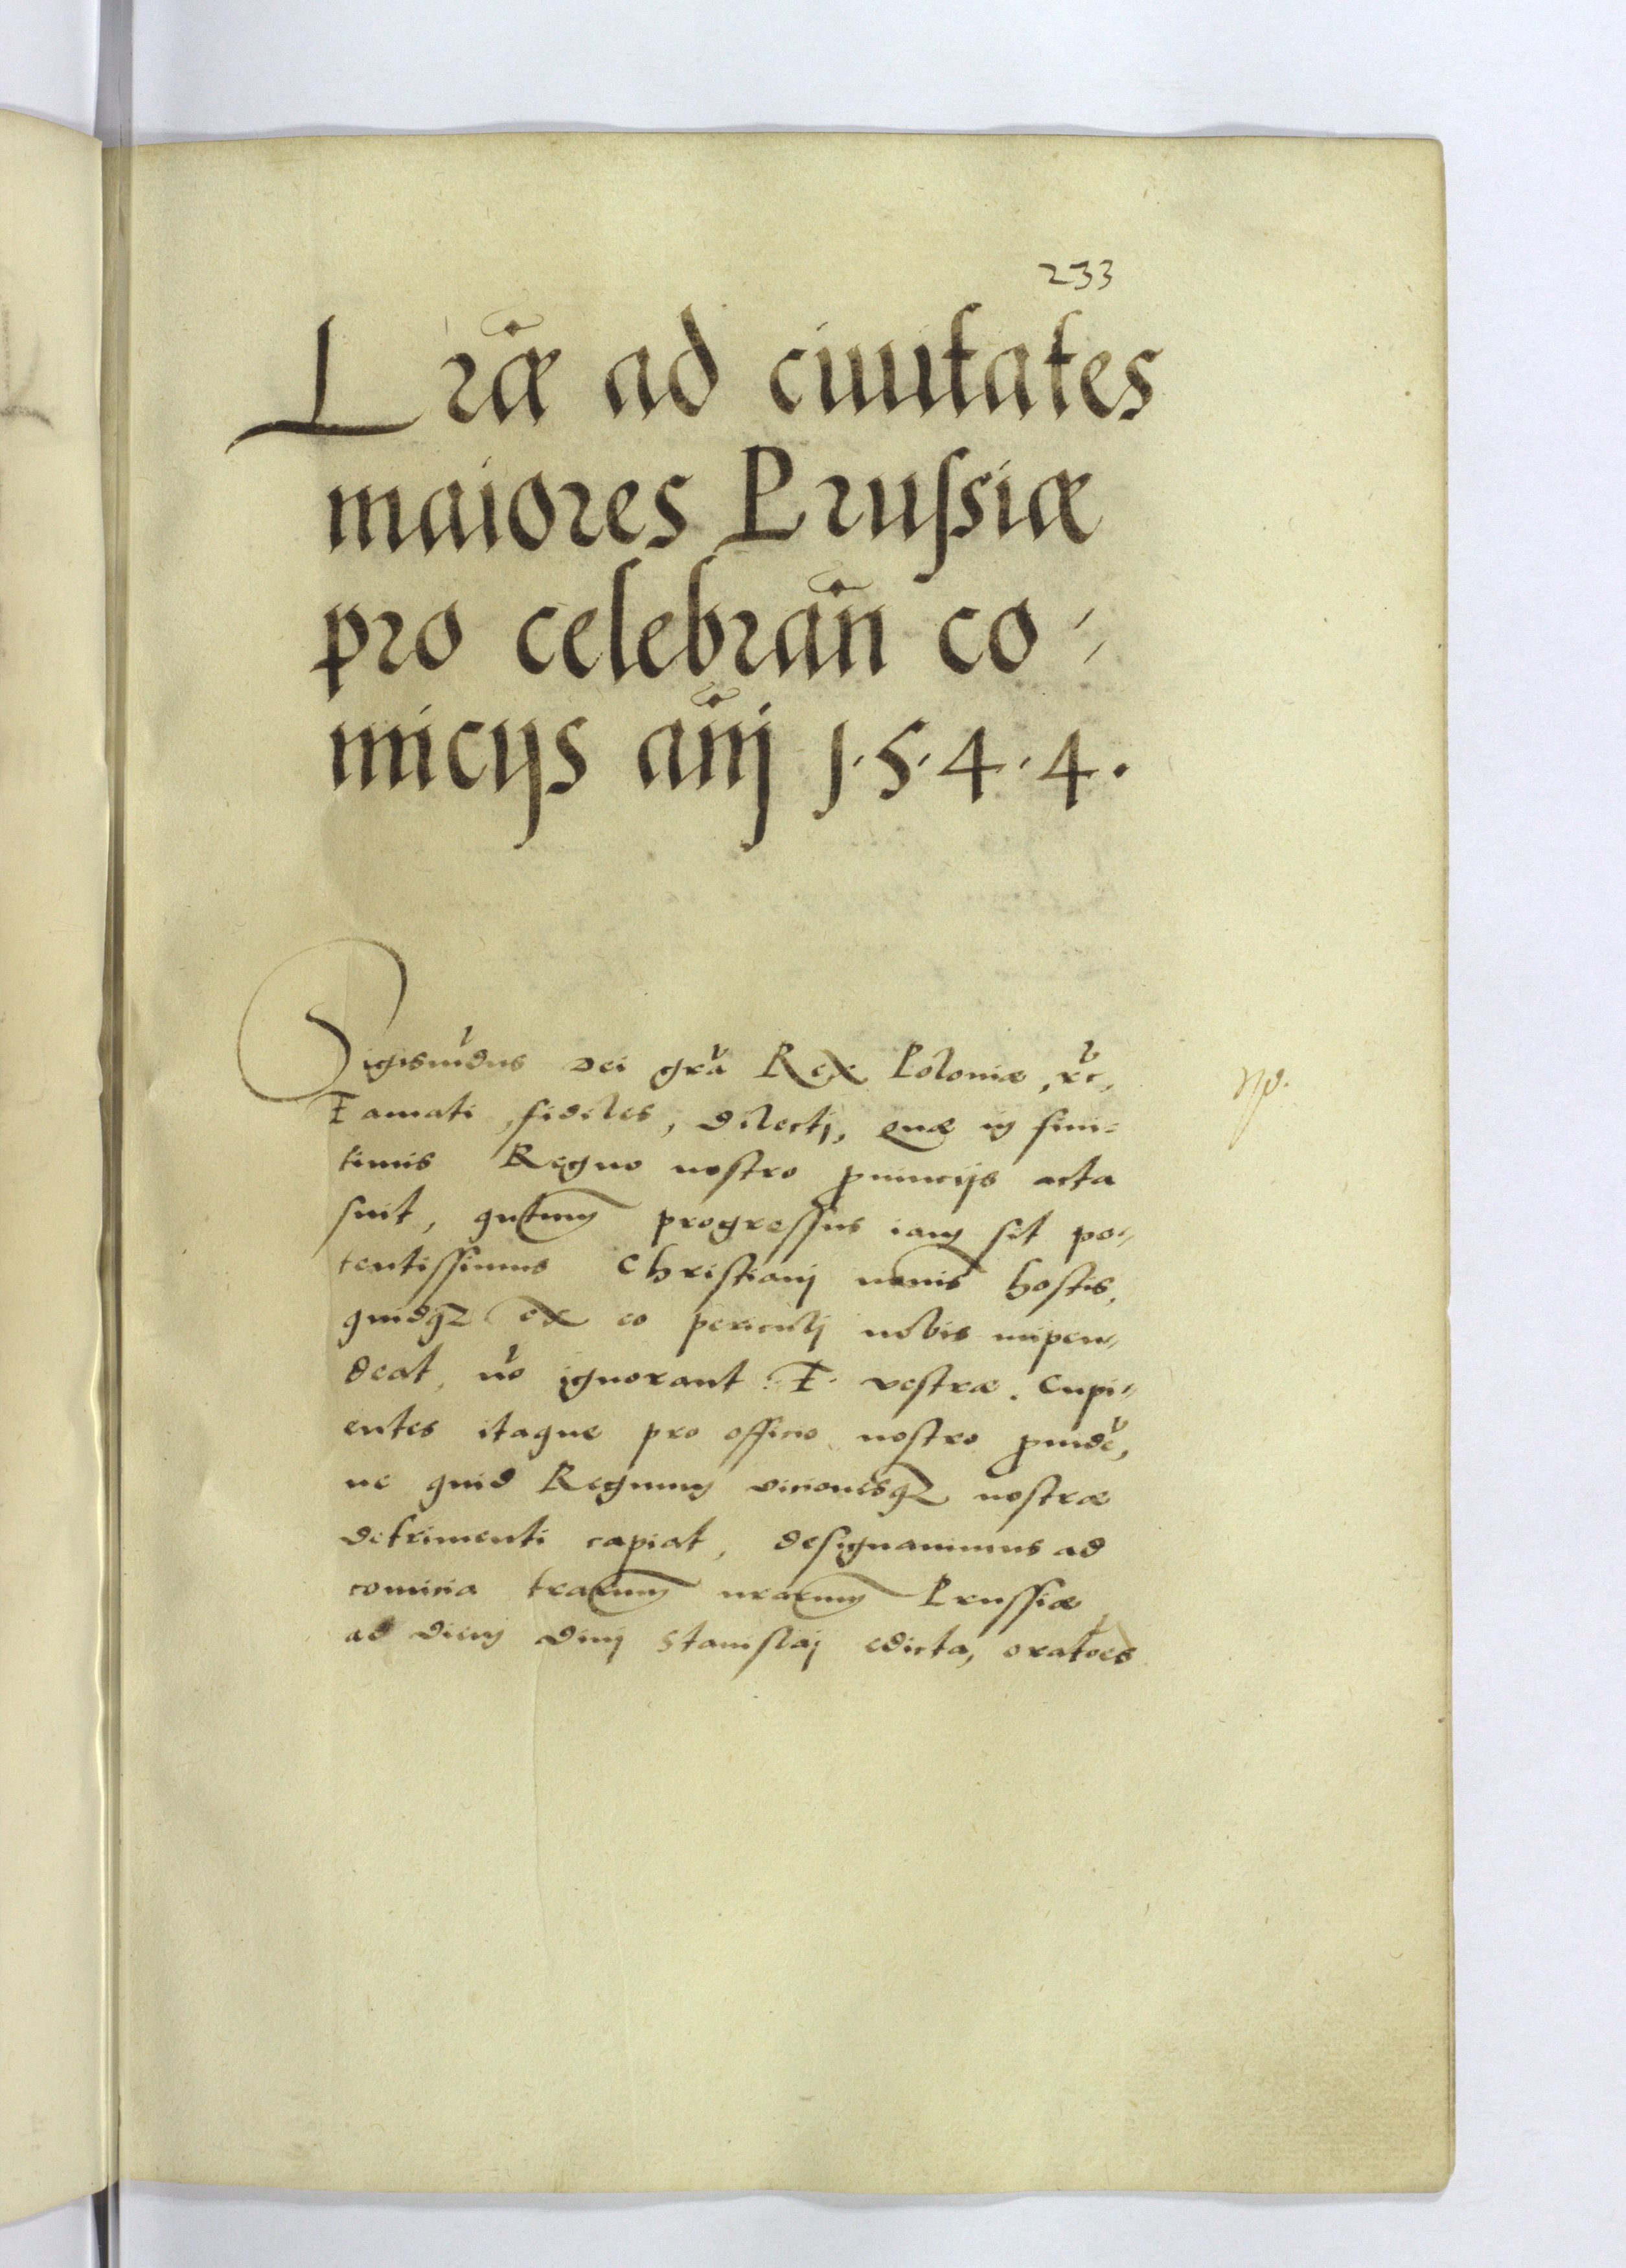 233
Lrãe ad ciuitates
maiores Prussiae
pro celebrañ co-
micijs añij 1.5.4.4.
Sigismũdus Dei grã Rex Poloniae, &c,
Famati, fideles, dilectj, Quae in fini-
timis Regno nostro prouincijs acta
sint, quatenus progressus iam sit po-
tentissimus Christianj nominis hostis,
quidq3 ex eo periculj nobis impen-
deat, nõ ignorant F. vestrae. Cupi-
entes itaque pro officio nostro prouidẽ,
ne quid Regnum dicionesq3 nostrae
detrimenti capiat, designauimus ad
comicia trarum nrarum Prussiae
ad diem diuj Stanislaj edicta, oratoẽs